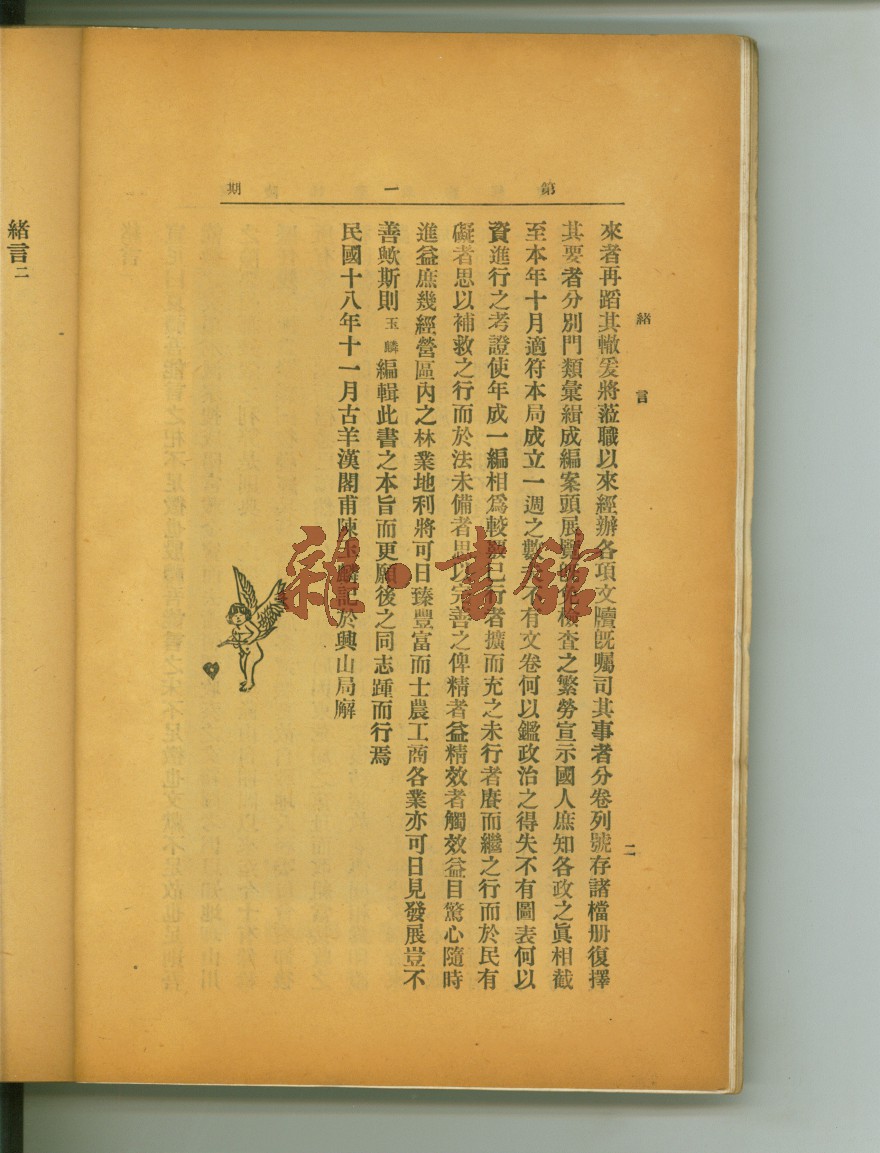 第一期
緒言
二
來者再蹈其轍爰將蒞職以來經辦各項文牘旣囑司其事者分卷列號存諸檔册復擇
其要者分別門類彙緝成編案頭展覽旣免檢查之繁勞宣示國人庶知各政之眞相截
至本年十月適符本局成立一週之數 不有文卷何以鑑政治之得失不有圖表何以
資進行之考證使年成一編相爲較 已行者擴而充之未行者賡而繼之行而於民有
礙者思以補救之行而於法未備者思以完善之俾精者益精效者觸效益目驚心隨時
進益庶幾經營區內之林業地利將可日臻豐富而士農工商各業亦可日見發展豈不
善歟斯則玉麟編輯此書之本旨而更願後之同志踵而行焉
民國十八年十一月古羊漢閣甫陳玉麟記於興山局廨
緒言二
雜·書館